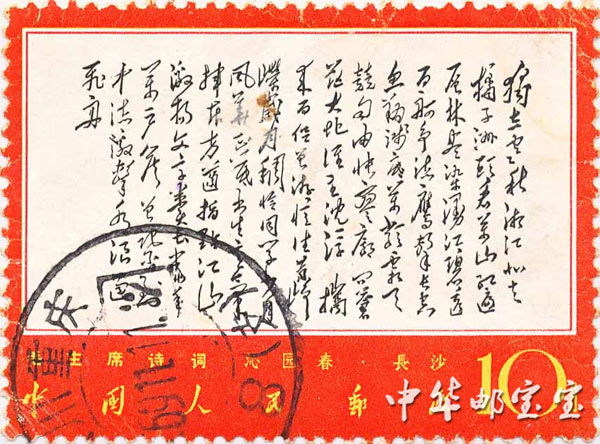 獨立寒秋湘江北去
橘子洲頭看萬山紅遍
层林尽染漫江碧透
百舸争流鷹擊長空
魚翔浅底萬類霜天
競自由怅寥廓问蒼
茫大地谁主沉浮 携
来百侣曾游忆往昔峥
嵘岁月稠恰同学少年
风华正茂书生意气
挥斥方遒指點江山
激扬文字粪土当年
萬户侯曾记否到
中流擊水浪遏
飛舟
毛主席诗词 沁园春·長沙
中国人民邮政
10
重庆
中华邮宝宝